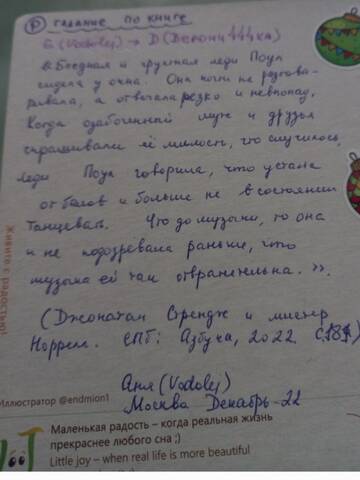 Ⓟ гадание по книге
G (Vodolej) → D (Верони
«Бледная и грустная леди Поул
сидела у окна. Она почти не разгова-
ривала, а отвечала резко и невпопад.
Когда озабоченный муж и друзья
спрашивали её милость, что случилось,
леди Поул говорила, что устала
от балов и больше не в состоянии
танцевать. Что до музыки, то она
и не подозревала раньше, что
музыка ей так отвратительна.».
(Джонатан Стрендж и мистер
Норрелл. СПб: Азбука, 2022 С.
Аня (Vodolej)
Москва Декабрь-22
Живите с радостью!
Иллюстратор @endmion1
Маленькая радость – когда реальная жизнь
прекраснее любого сна ;)
Little joy – when real life is more beautiful